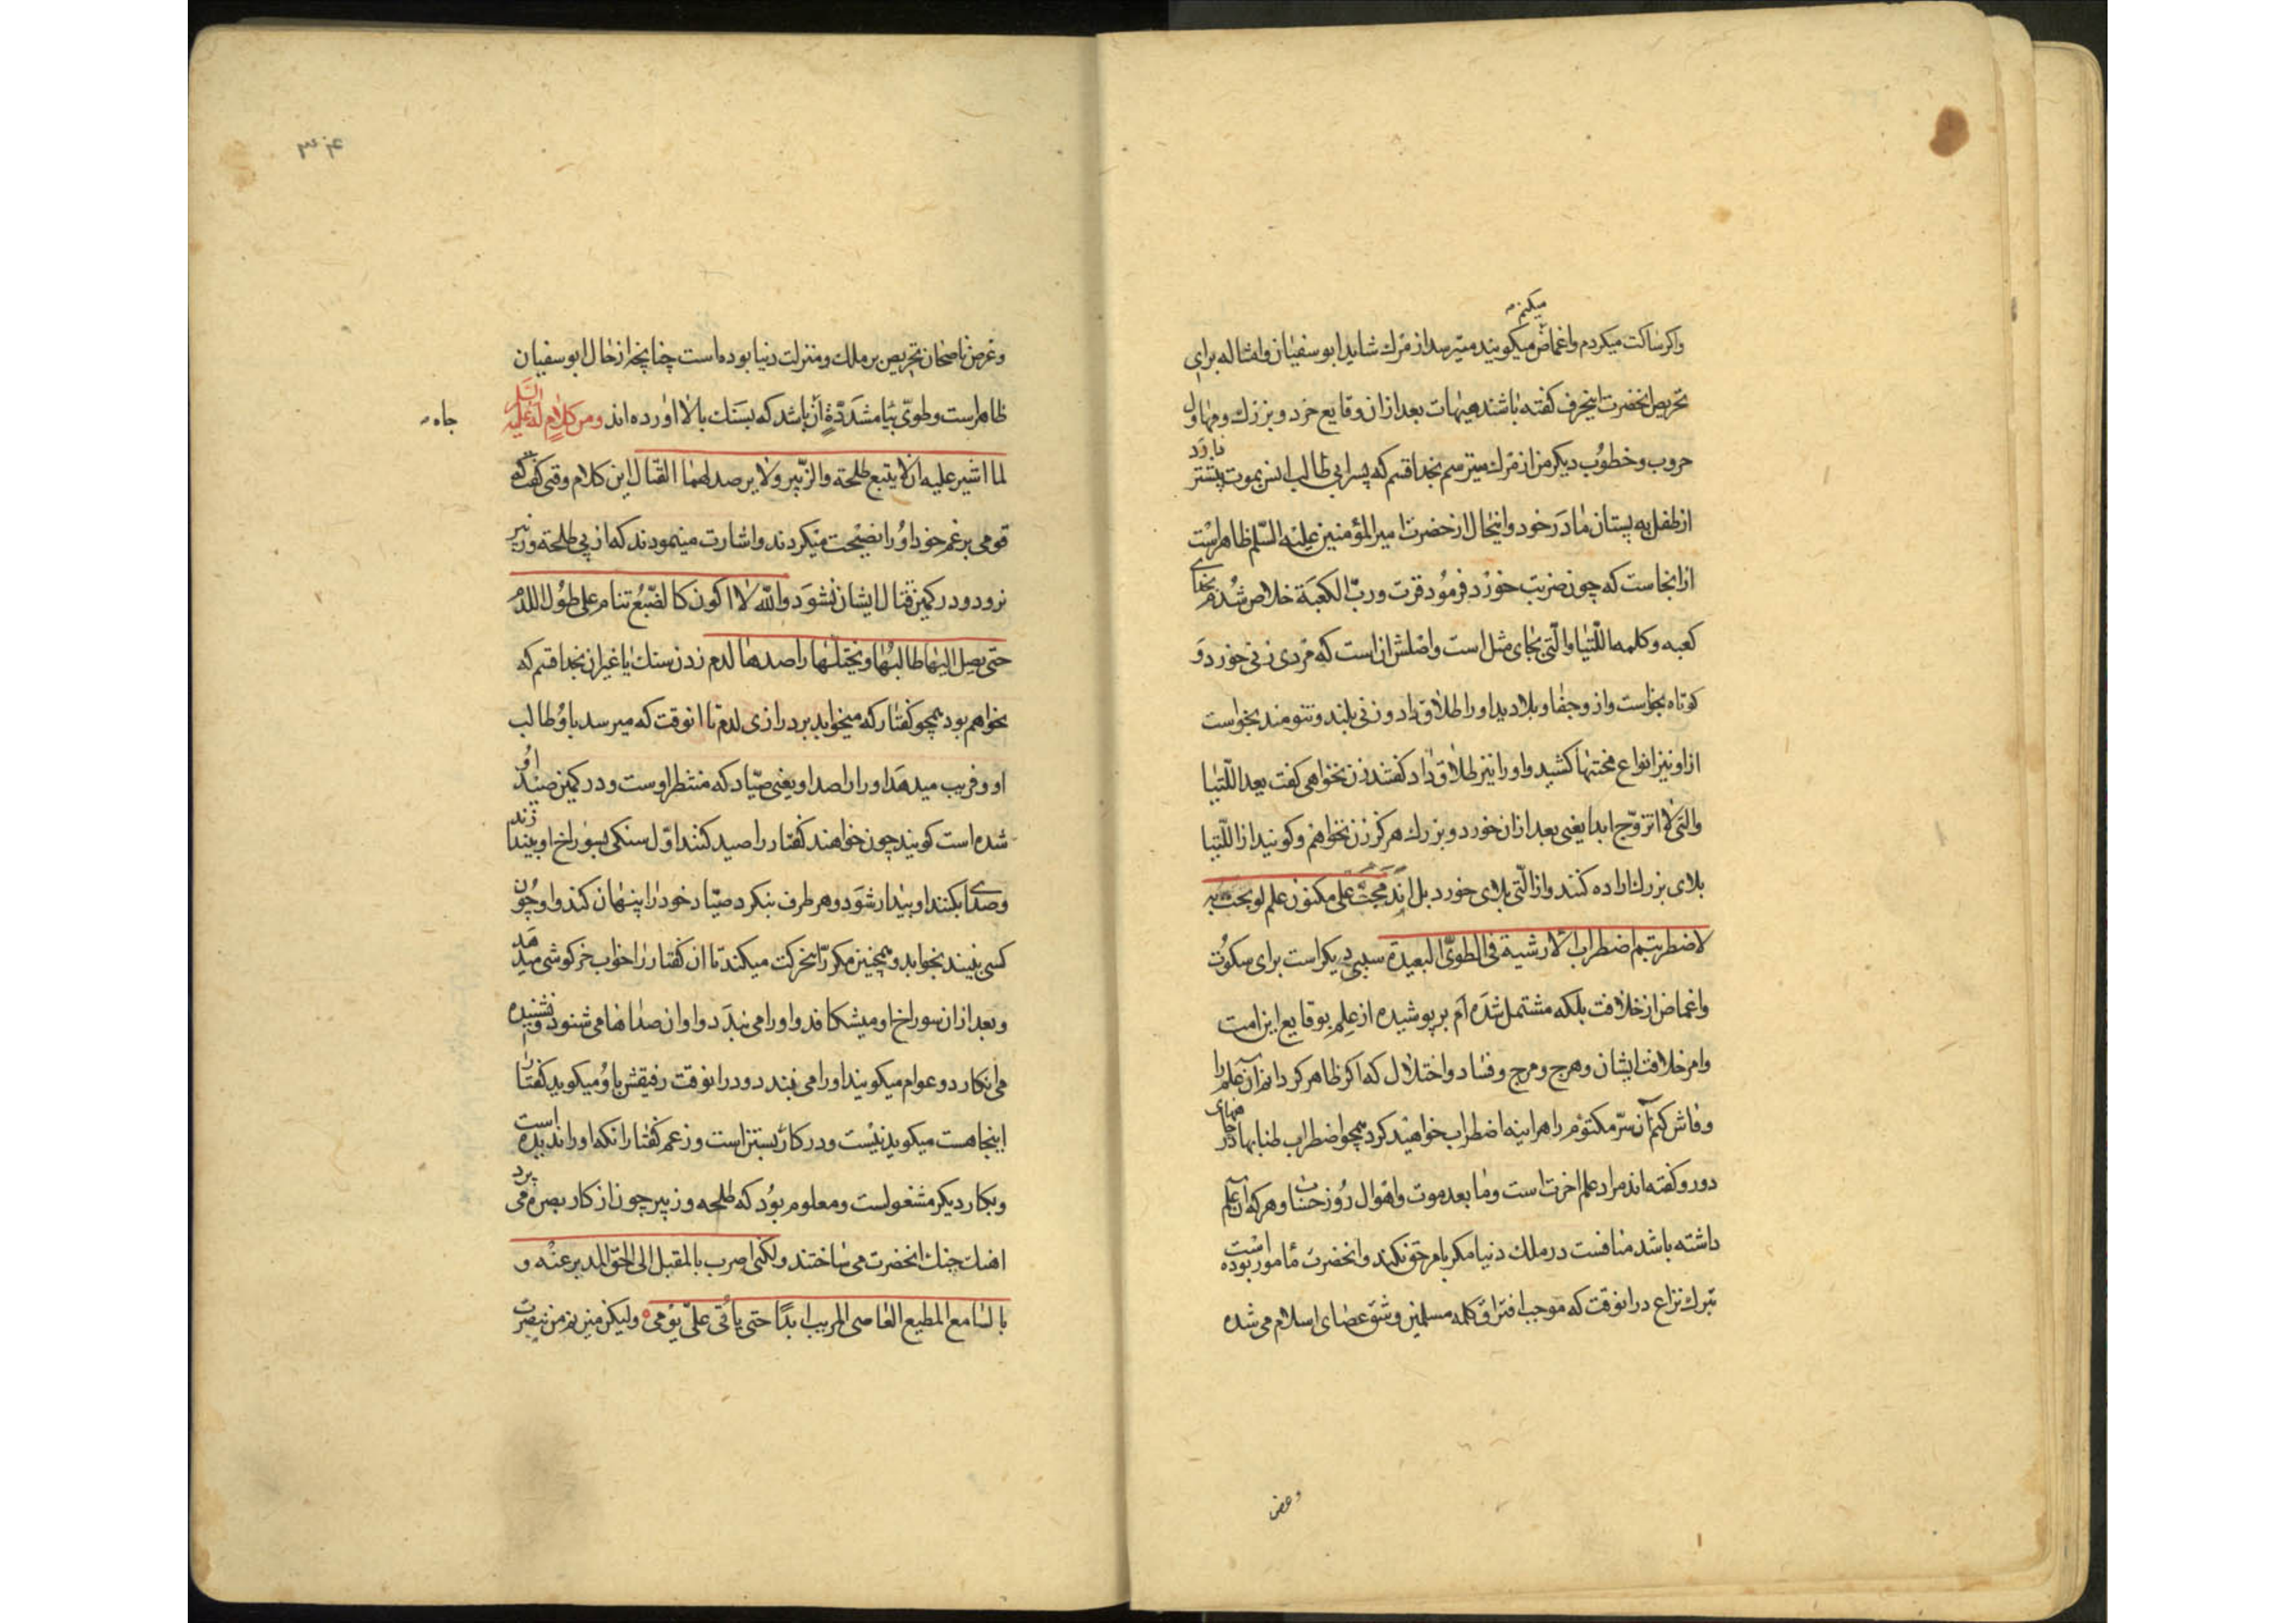 میکنم
واکر ساکت میکردم واغماض میکویند میترسد از مرك شاید ابوسفیان وامثاله برای
تحریص انحضرت اینحرف کفته باشند هیهات بعد ازان وقایع خرد و بزرك ومهاول
حروب وخطوب دیکر من از مرك میترسم بخدا قسم که پسر ابی طالب انس بموت بیشتر دارد
از طفل به پستان مادر خود واینحال از حضرت امیرالمؤمنین علیه السّلم ظاهر است
ازانجاست که چون ضربت خورد فرمود فزت وربّ الکعبة خلاص شدم بخدای
کعبه وکلمه اللّتیا والّتی بجای مثل است واصلش انست که مردی زنی خورد و
کوتاه بخواست واز وجفا وبلا دید اورا طلاق داد وزنی بلند وتنومند بخواست
ازاو نیز انواع محنتها کشید واورا نیز طلاق داد کفتند زن نخواهی کفت بعد اللّتیا
والتی لا اتزوّج ابدا یعنی بعد ازان خورد وبزرك هرکز زن نخواهم وکویند از اللّتیا
بلای بزرك اراده کنند واز الّتی بلای خورد بل اندمجت علی مکنون علم لو بحت به
لاضطربتم اضطراب الارشیة فی الطویّ البعیدة سببی دیکر است برای سکوت
واغماض از خلافت بلکه مشتمل شده ام بر پوشیده از علم بوقایع این امت
وامر خلافت ایشان وهرج ومرج وفساد واختلال که اکر ظاهر کردانم آن علم را
وفاش کنم آن سرّ مکتوم را هراینه اضطراب خواهند کرد همچو اضطراب طنابها در چاههای
دور وکفته اند مراد علم اخرت است وما بعد موت واهوال روز حساب وهرکه آن علم
داشته باشد منافست در ملك دنیا مکر بامر حق نکند وانحضرت مامور بوده است
بترك نزاع درانوقت که موجب افتراق کلمه مسلمین وشقّ عصای اسلام می شده
وغرض
۳۴
وغرض ناصحان تحریص بر ملك ومنزلت دنیا بوده است چنانچه از حال ابوسفیان
ظاهر است وطویّ بیا مشدّدة آن باشد که بسنك بالا اورده اند ومن کلام له علیه السّلم
جاه
لما اشیر علیه ان لا یتبع طلحة والزّبیر ولا یرصد لهما القتال این کلام وقتی کفت که
قومی بزعم خود اورا نصیحت میکردند واشارت مینمودند که از پی طلحه وزبیر
نرود ودر کمین قتال ایشان نشود واللّه لا اکون کالضّبع تنام علی طول اللدم
حتی یصل الیها طالبها ویختلها راصدها لدم زدن سنك یا غیر ان بخدا قسم که
نخواهم بود همچو کفتار که میخوابد بر درازی لدم تا انوقت که میرسد باو طالب
او وفریب میدهد اورا راصد او یعنی صیّاد که منتظر اوست ودر کمین صید او
شده است کویند چون خواهند کفتار را صید کنند اوّل سنکی بسوراخ او بیندازند
وصدای بکنند او بیدار شود وهر طرف بنکرد صیّاد خود را پنهان کند واو چون
کسی نبیند بخوابد وهمچنین مکرّر این حرکت میکند تا ان کفتار را خواب خرکوشی میدهد
وبعد ازان سوراخ او میشکافد واورا می بندد واو ان صداها می شنود ونشنیده
می انکارد وعوام میکویند اورا می بندد ودر انوقت رفیقش باو میکوید کفتار
اینجا هست میکوید نیست ودر کار بستن است وزعم کفتار انکه اورا ندیده است
وبکار دیکر مشغولست ومعلوم بود که طلحه وزبیر چون از کار بصره می پردازند
اهنك جنك انحضرت می ساختند ولکنی اضرب بالمقبل الی الحقّ المدبر عنه و
بالسّامع المطیع العاصی المریب ابدًا حتی یاتی علیّ یومی ولیکن میزنم من بنصرت